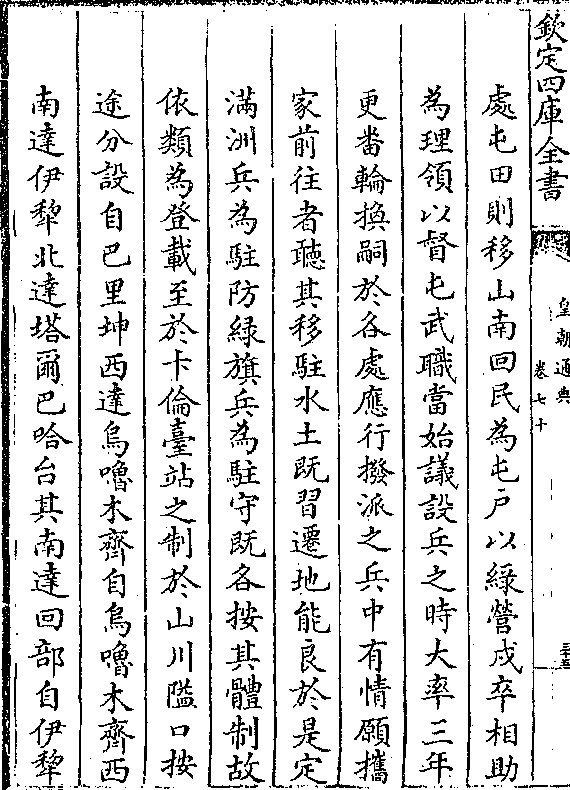 欽定四庫全書
皇朝通典
卷七十
處屯田則移山南回民為屯戸以綠營戍卒相助
為理領以督屯武職當始議設兵之時大率三年
更畨輪換嗣於各處應行撥派之兵中有情願攜
家前往者聴其移駐水土既習遷地能良於是定
滿洲兵為駐防綠旗兵為駐守既各按其體制故
依類為登載至於卡倫臺站之制於山川隘口按
途分設自巴里坤西達烏嚕木齊自烏嚕木齊西
南達伊犂北達塔爾巴哈台其南達回部自伊犂